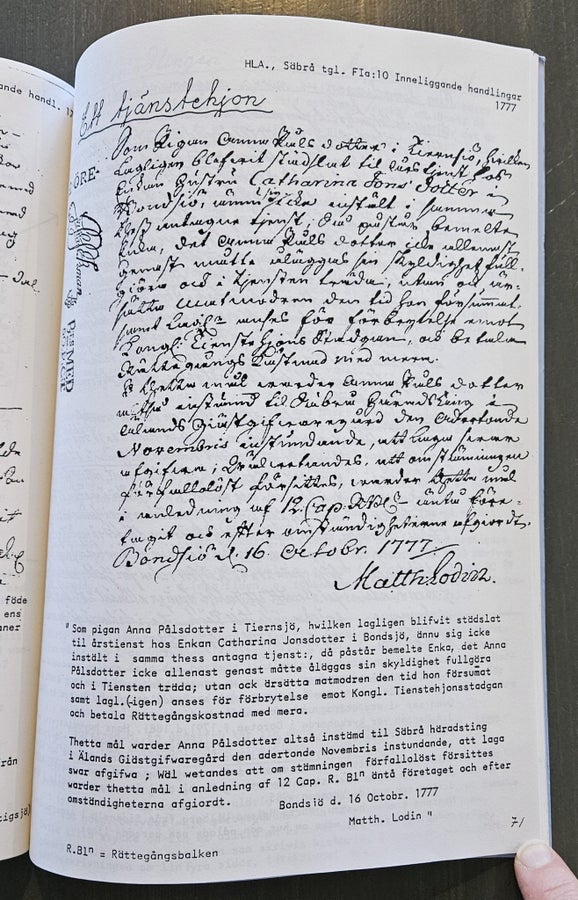 HLA., Säbrå tgl. FIa:10 Inneliggande handlingar
1777
Ett tjänstehjon
Som Pigan Anna Påls dotter i Tiernsjö, hwilken
lagligen blefwit städslat til årstjenst hos
Enkan Hustru Catharina Jons Dotter i
Bondsjö, ännu sig icke instält i samma
thess antagne tjenst; då påstår bemelte
Enka, det Anna Påls dotter icke allenast
genast måtte åläggas sin skyldighet full-
giöra och i tjensten träda; utan ock er-
sätta matmodren den tid hon försummat
samt lagl. anses för förbrytelse emot
Kongl. Tienstehjons Stadgan, och betala
Rättegångs Kostnad med mera.
Thetta mål warder Anna Påls dotter
altså instämd til Säbrå Häradsting i
Älands Giästgifwaregård den Adertonde
Novembris instundande, att laga swar
afgifwa; Wäl wetandes, att om stämningen
förfallolöst försittes, warder thetta mål
i anledning af 12. Cap. R.Bln äntå före-
tagit och efter omständigheterne afgiordt.
Bondsjö d. 16. Octobr. 1777.
Matth. Lodin.
"Som pigan Anna Pålsdotter i Tiernsjö, hwilken lagligen blifwit städslat
til årstienst hos Enkan Catharina Jonsdotter i Bondsjö, ännu sig icke
instält i samma thess antagna tjenst:, då påstår bemelte Enka, det Anna
Pålsdotter icke allenast genast måtte åläggas sin skyldighet fullgöra
och i Tiensten träda; utan ock ärsätta matmodren den tid hon försumat
samt lagl.(-igen) anses för förbrytelse emot Kongl. Tienstehjonsstadgan
och betala Rättegångskostnad med mera.
Thetta mål warder Anna Pålsdotter altså instömd til Säbrå häradsting
i Älands Giästgifwaregård den adertonde Novembris instundande, att laga
swar afgifwa ; Wäl wetandes att om stämningen förfallolöst försittes
warder thetta mål i anledning af 12 Cap. R. Bln äntå företaget och efter
omständigheterna afgiordt.
Bondsiö d. 16 Octobr. 1777
Matth. Lodin "
R.Bln = Rättegångsbalken
71